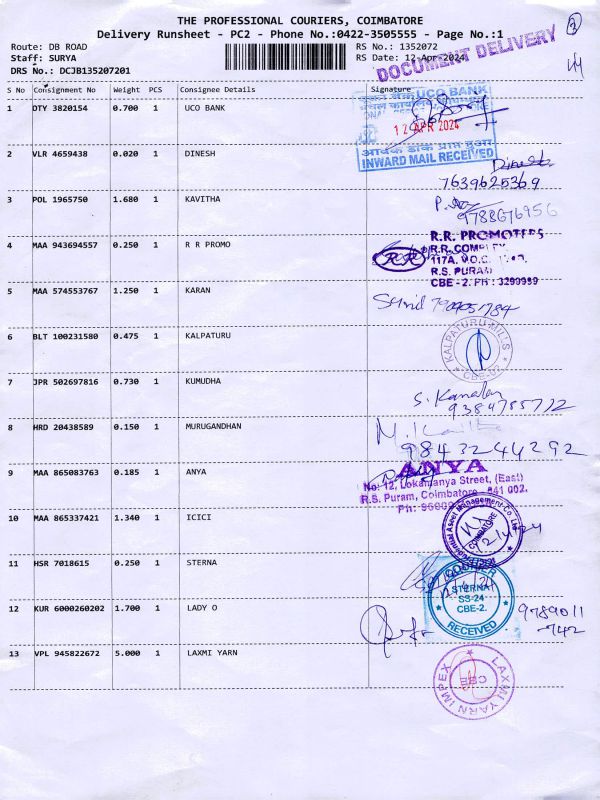 THE PROFESSIONAL COURIERS, COIMBATORE
Delivery Runsheet - PC2 - Phone No.:0422-3505555 - Page No.:1
Route: DB ROAD
Staff: SURYA
DRS No.: DCJB135207201
RS No.: 1352072
RS Date: 12-Apr-2024
DOCUMENT DELIVERY
2
S No Consignment No Weight PCS Consignee Details Signature
1 DTY 3820154 0.700 1 UCO BANK
UCO BANK
12 APR 2024
INWARD MAIL RECEIVED
2 VLR 4659438 0.020 1 DINESH
Dinesh
7639625369
3 POL 1965750 1.680 1 KAVITHA
9788676956
4 MAA 943694557 0.250 1 R R PROMO
R.R. PROMOTERS
RR
R.R. COMPLEX
117A, V.O.C.
R.S. PURAM
CBE - 2. PH : 3299999
5 MAA 574553767 1.250 1 KARAN
6 BLT 100231580 0.475 1 KALPATURU
KALPATURU MILLS
CBE-02
7 JPR 502697816 0.730 1 KUMUDHA
9384785772
8 HRD 20438589 0.150 1 MURUGANDHAN
9843244292
9 MAA 865083763 0.185 1 ANYA
ANYA
No: 12, Lokamanya Street, (East)
R.S. Puram, Coimbatore - 641 002.
10 MAA 865337421 1.340 1 ICICI
Prudential Asset Management Co. Ltd
COIMBATORE
11 HSR 7018615 0.250 1 STERNA
COURIER
STERNA
SS-24
CBE-2.
RECEIVED
12 KUR 6000260202 1.700 1 LADY O
9789011
742
13 VPL 945822672 5.000 1 LAXMI YARN
LAXMI YARN IMPEX
CBE